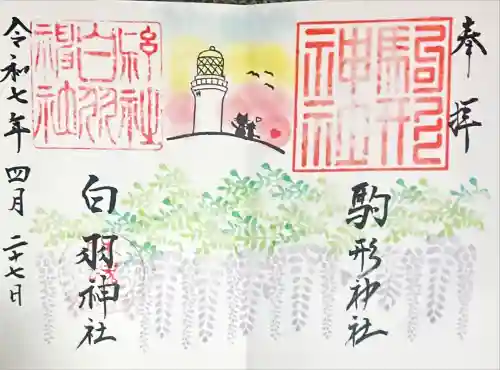 奉拝
駒形神社
白羽神社
令和七年 四月 二十七日
駒形
神社
白羽
神社